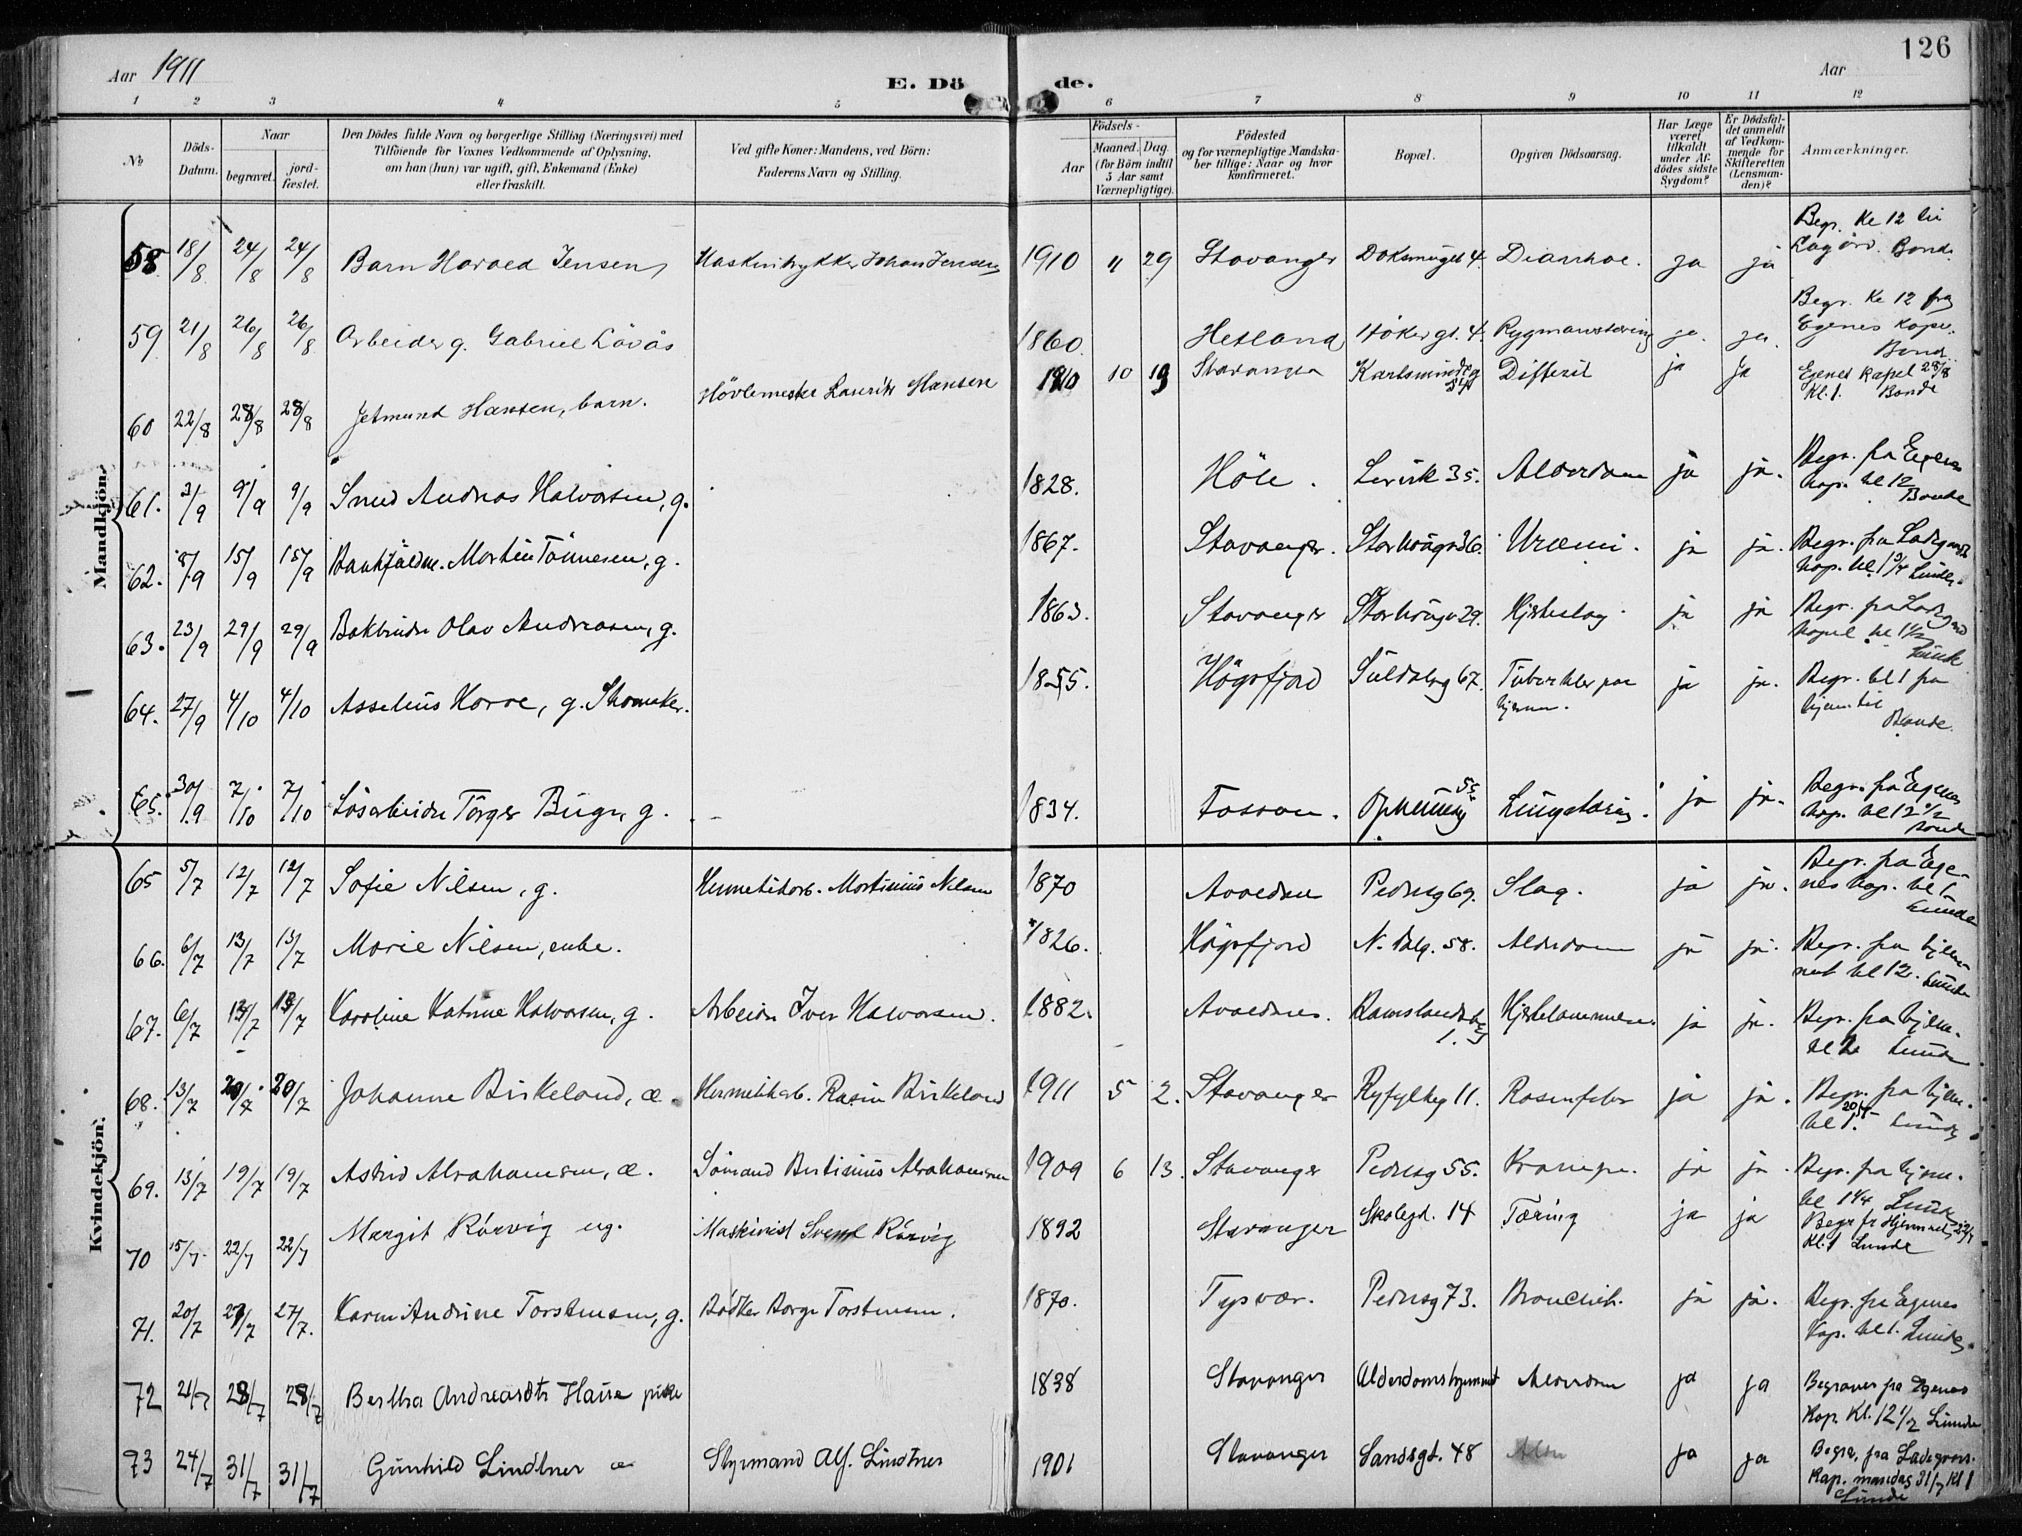 Aar 1911
E. Dö de.
126
Aar
1 2 3 4 5 6 7 8 9 10 11 12
No
Döds-Datum.
Naar
begravet.
jord-fæstet.
Den Dödes fulde Navn og borgerlige Stilling (Næringsvei) med
Tilföiende for Voxnes Vedkommende af Oplysning,
om han (hun) var ugift, gift, Enkemand (Enke)
eller fraskilt.
Ved gifte Koner: Mandens, ved Börn:
Faderens Navn og Stilling.
Födsels-
Aar
Maaned. Dag.
(for Börn indtil
5 Aar samt
Værnepligtige).
Födested
og for værnepligtige Mandska-
ber tillige: Naar og hvor
konfirmeret.
Bopæl.
Opgiven Dödsaarsag.
Har Læge
været
tilkaldt
under Af-
dödes sidste
Sygdom?
Er Dödsfal-
det anmeldt
af Vedkom-
mende for
Skifteretten
(Lensman-
den)?
Anmærkninger.
Mandkjön.
58 18/8 24/8 24/8 Barn Harald Jensen Johan Jensen 1910 11 29 Stavanger 4. Diarrhoe. ja ja Begr. Kl 12 Bonde
59 21/8 26/8 26/8 Arbeider g. Gabriel Lövås 1860 Hetland Höker gt. 4. ja ja Begr. Kl 12 fra Egenes Kape. Bonde
60 22/8 28/8 28/8 Jetmund Hansen, barn. Hövlemester Laurits Hansen 1910 10 19 Stavanger Difterit ja ja Egenes Kapel 28/8 Kl. 1. Bonde
61. 3/9 9/9 9/9 Andreas Halvorsen, g. 1828. Höle. Lervik 35. Alderdom ja ja. Begr. fra Egenes kap. kl 12 Bonde
62. 8/9 15/9 15/9 Martin Tönnesen, g. 1867. Stavanger. 36. Uræmi. ja ja. Begr. fra kap. kl. 1 3/4 Lunde.
63. 23/9 29/9 29/9 Bokbinder Olav Andreasen, g. 1863. Stavanger 29. Hjerteslag. ja ja Begr. fra Ladegaard kapel kl 1 1/2 Lunde
64. 27/9 4/10 4/10 Asselius Horve, g. Skomaker. 1855. Högsfjord Suldalsg 67. Tuberkler paa hjernen. ja ja. Begr. kl 1 fra hjemmet Bonde.
65. 30/9 7/10 7/10 Lösarbeider Törger Bugn, g. 1834. Fossan. 55 ja ja. Begr. fra Egenes kap. kl 12 1/2 Bonde
Kvindekjön.
65 5/7 12/7 12/7 Sofie Nilsen, g. Hermetikarb. Martinius Nilsen 1870 Avaldsnes Pedersg 69. Slag. ja ja. Begr. fra Egenes kap. kl 1 Lunde
66. 6/7 13/7 13/7 Marie Nilsen, enke. 1826. Högsfjord N. Dalg. 58. Alderdom ja ja. Begr. fra hjemmet kl 12. Lunde
67. 6/7 13/7 13/7 Karoline Katrine Halvorsen, g. Arbeider Iver Halvorsen. 1882. Avaldsnes. 1. Hjertelammelse. ja ja. Begr. fra hjem. kl 2 Lunde
68. 13/7 20/7 20/7 Johanne Birkeland, æ. Hermetikarb. Rasm Birkeland 1911 5 2. Stavanger Ryfylkeg 11. Rosenfeber ja ja. Begr. fra hjem. 20/7 kl 1. Lunde
69. 13/7 19/7 19/7 Astrid Abrahamsen, æ. Sömand Bertinius Abrahamsen 1909 6 13. Stavanger Pedersg 55. Krampe. ja ja. Begr. fra hjem. kl 1 1/4 Lunde
70 15/7 22/7 22/7 Margit Rörvig ug. Maskinist Svend Rörvig 1892 Stavanger Skolegd. 14 Tæring ja ja Begr. fr Hjemmet 22/7 Kl. 1 Lunde
71. 20/7 27/7 27/7. Karen Andrine Torstensen, g. Bödker Börge Torstensen. 1870. Tysvær. Pedersg 73. Bronchit. ja ja. Begr. fra Egenes kap. kl 1. Lunde
72 21/7 28/7 28/7 Bertha Andreasdtr Haise pike 1838 Stavanger Alderdomshjemmet Alderdom ja ja Begraves fra Egenes Kap. Kl. 12 1/2 Lunde
73 24/7 31/7 31/7 Gunhild Lindtner æ Styrmand Alf. Lindtner 1901 Stavanger Sandsgt. 48 ja ja Begra. fra Ladegaards. Kap. mandag 31/7 Kl 1 Lunde